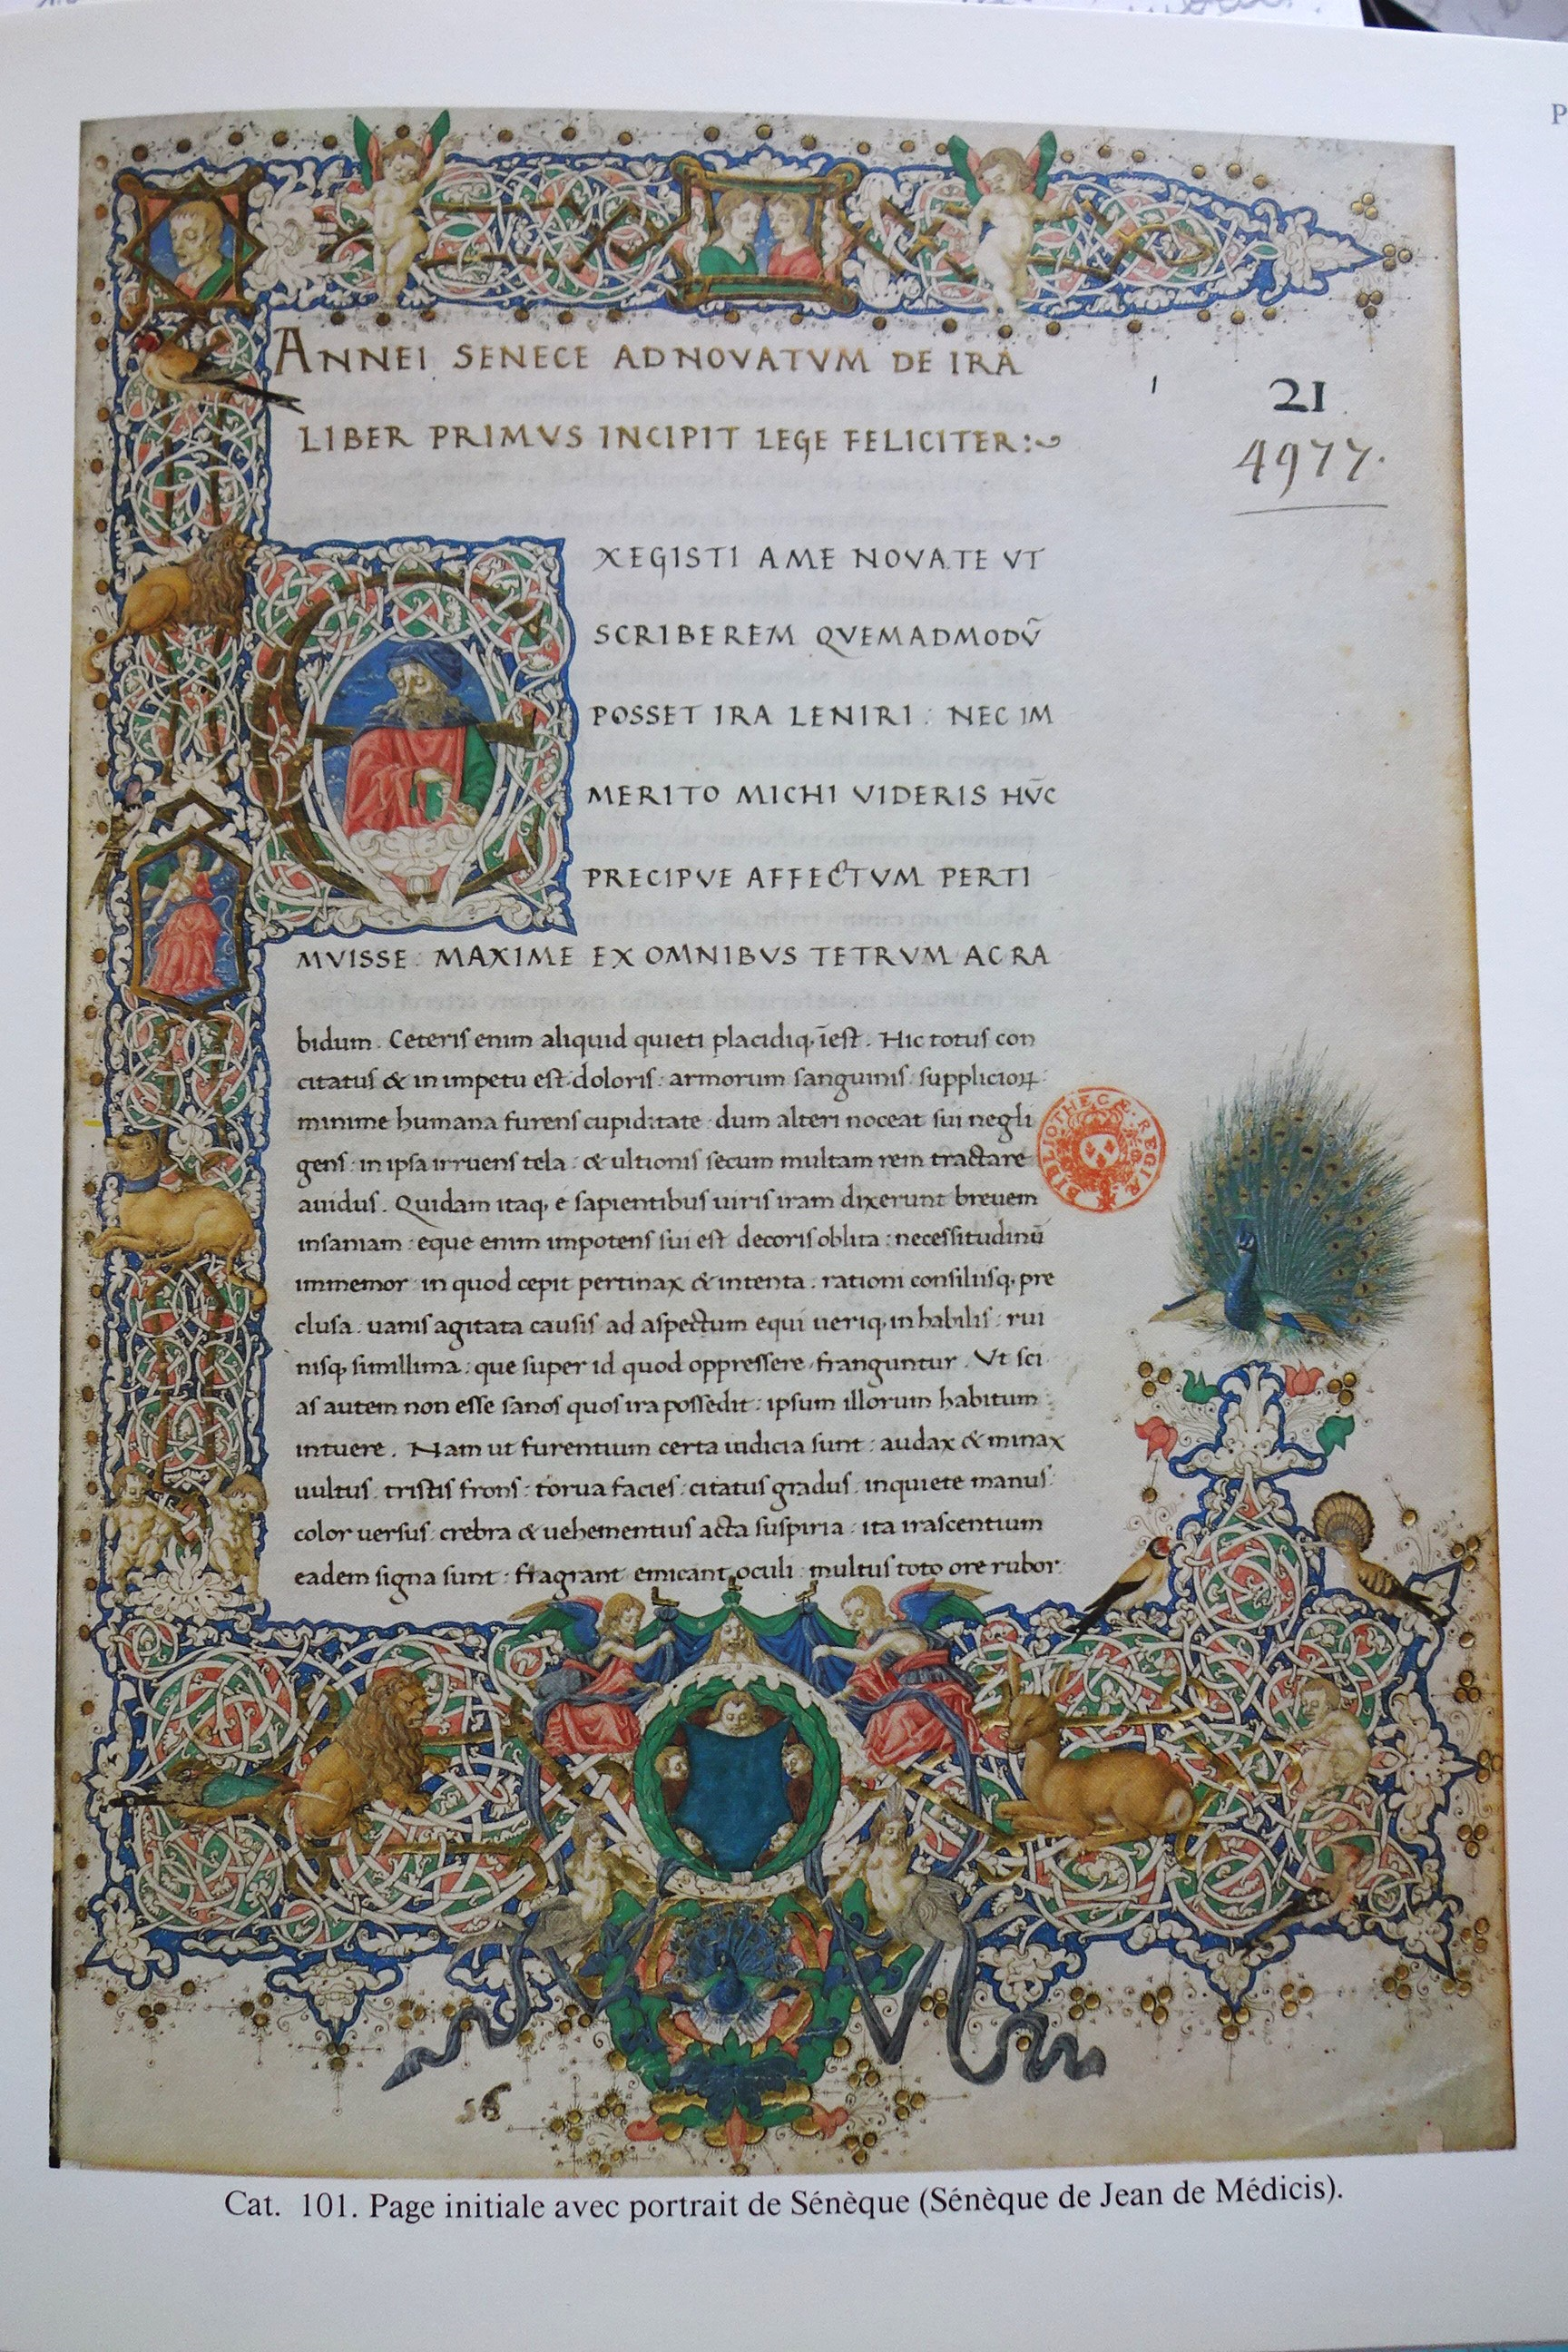 P
ANNEI SENECE AD NOVATVM DE IRA
LIBER PRIMVS INCIPIT LEGE FELICITER:
21
4977.
EXEGISTI A ME NOVATE VT
SCRIBEREM QVEMADMODV̄
POSSET IRA LENIRI : NEC IM
MERITO MICHI VIDERIS HV̄C
PRECIPVE AFFECTVM PERTI
MVISSE : MAXIME EX OMNIBVS TETRVM AC RA
bidum. Ceteris enim aliquid quieti placidiq; īest. Hic totus con
citatus & in impetu est doloris: armorum sanguinis supplicioꝝ
minime humana furens cupiditate dum alteri noceat sui negli
gens: in ipsa irruens tela: & ultionis secum multam rem tractare
auidus. Quidam itaq; e sapientibus uiris iram dixerunt breuem
insaniam: eque enim impotens sui est decoris oblita: necessitudinū
immemor in quod cepit pertinax & intenta: rationi consiliisq; pre
clusa. uanis agitata causis ad aspectum equi ueriq; inhabilis: rui
nisq; simillima: que super id quod oppressere franguntur. Vt sci
as autem non esse sanos quos ira possedit: ipsum illorum habitum
intuere. Nam ut furentium certa indicia sunt: audax & minax
uultus: tristis frons: torua facies: citatus gradus. inquiete manus:
color uersus: crebra & uehementius acta suspiria: ita irascentium
eadem signa sunt: flagrant emicant oculi multus toto ore rubor
BIBLIOTHECÆ REGIÆ
Cat. 101. Page initiale avec portrait de Sénèque (Sénèque de Jean de Médicis).